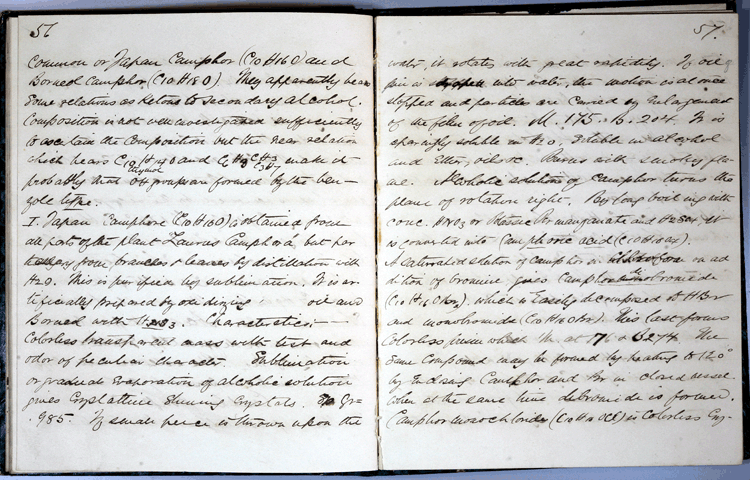 56
Common or Japan Camphor (C10 H16 O) and
Borneol Camphor (C10 H18 O). They apparently bear
Some relations as Ketone to Secondary alcohol.
Composition is not well investigated sufficiently
to ascertain the Composition but the near relation
which bears C10 H14 O and C6 H3 CH3 C3H7 make it
thymol
probably that OH group are formed by the ben-
zole type.
I. Japan Camphor (C10 H16 O) is obtained from
all parts of the plant Laurus Camphora, but par
from branches & leaves by distillation with
H2O. This is purified by sublimation. It is ar-
tificially prepared by oxidizing oil and
Borneol with HNO3. Characteristics:—
Colorless transparent mass with test and
odor of peculiar character. Sublimation
or gradual evaporation of alcoholic solution
gives Crystalline shining Crystals. Sp Gr=
.985. If small piece is thrown upon the
57.
water, it rotates with great rapidity. If oil
is into water, the motion is at once
stopped and particles are carried by enlargement
of the film of oil. M. 175. B. 204. It is
sparingly soluble in H2O, soluble in alcohol
and Ether, oils etc. Burns with smoky fla-
me. Alcoholic solution of Camphor turns the
plane of rotation right. By long boiling with
conc. HNO3 or Potassic Permanganate and H2SO4 it
is converted into Camphoric acid (C10 H16 O4).
A saturated solution of Camphor in on ad
dition of bromine gives Camphor bromide
(C10 H16 O Br2), which is easily decomposed to HBr
and monobromide (C10 H15 O Br). This last forms
Colorless M. at 76 & B 274. The
same Compound may be formed by heating to 120°
by Camphor and Br in closed vessel
when at the same time dibromide is formed.
Camphor monochloride (C10 H15 OCl) is Colorless Cry-